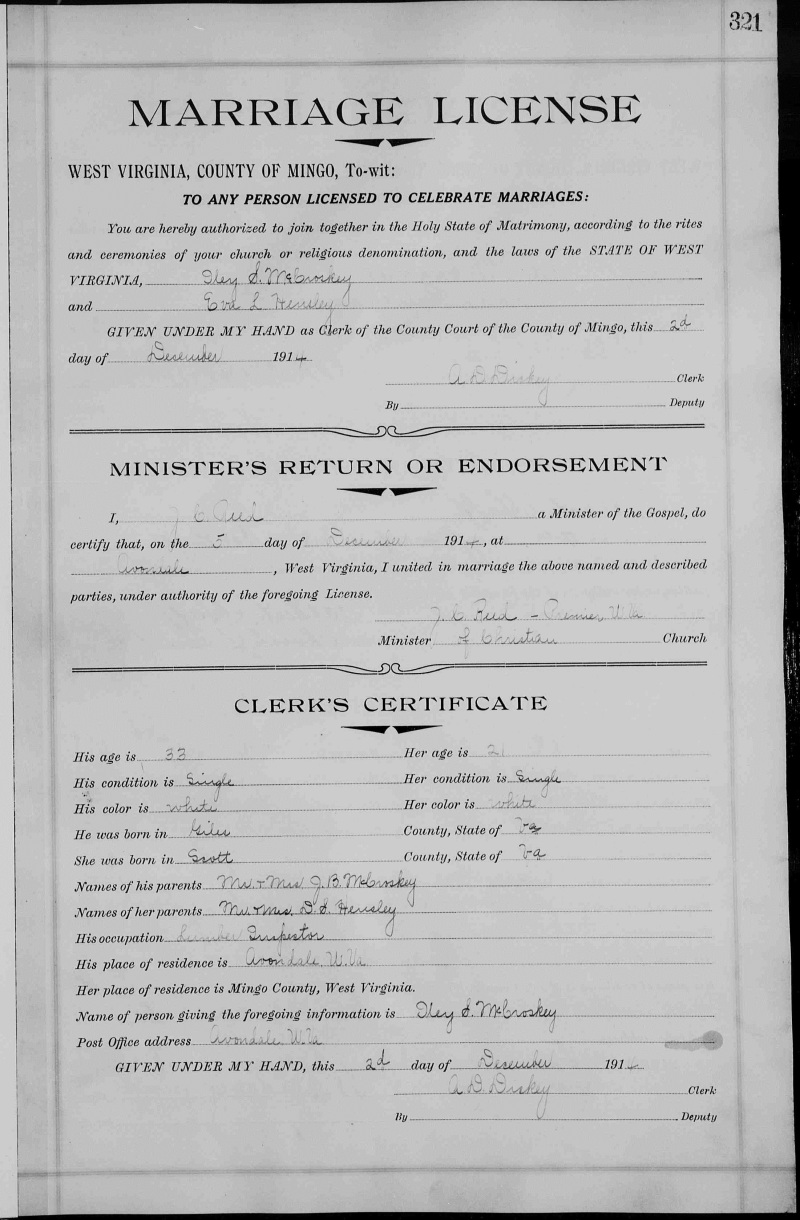 321
MARRIAGE LICENSE
WEST VIRGINIA, COUNTY OF MINGO, To-wit:
TO ANY PERSON LICENSED TO CELEBRATE MARRIAGES:
You are hereby authorized to join together in the Holy State of Matrimony, according to the rites
and ceremonies of your church or religious denomination, and the laws of the STATE OF WEST
VIRGINIA, S. McCroskey
and Eva L Hensley
GIVEN UNDER MY HAND as Clerk of the County Court of the County of Mingo, this 2d
day of December 1914
A. D. Clerk
By Deputy
MINISTER'S RETURN OR ENDORSEMENT
I, J. C. Reed a Minister of the Gospel, do
certify that, on the 5 day of December 1914, at
Avondale, West Virginia, I united in marriage the above named and described
parties, under authority of the foregoing License.
J. C. Reed - Premier W Va
Minister of Christian Church
CLERK'S CERTIFICATE
His age is 33 Her age is
His condition is Single Her condition is Single
His color is white Her color is white
He was born in Giles County, State of Va
She was born in Scott County, State of Va
Names of his parents Mr. & Mrs. J. B. McCroskey
Names of her parents Mr. & Mrs. D. S. Hensley
His occupation Lumber Inspector
His place of residence is Avondale, W. Va.
Her place of residence is Mingo County, West Virginia.
Name of person giving the foregoing information is S. McCroskey
Post Office address Avondale W. Va
GIVEN UNDER MY HAND, this 2d day of December 1914
A. D. Clerk
By Deputy